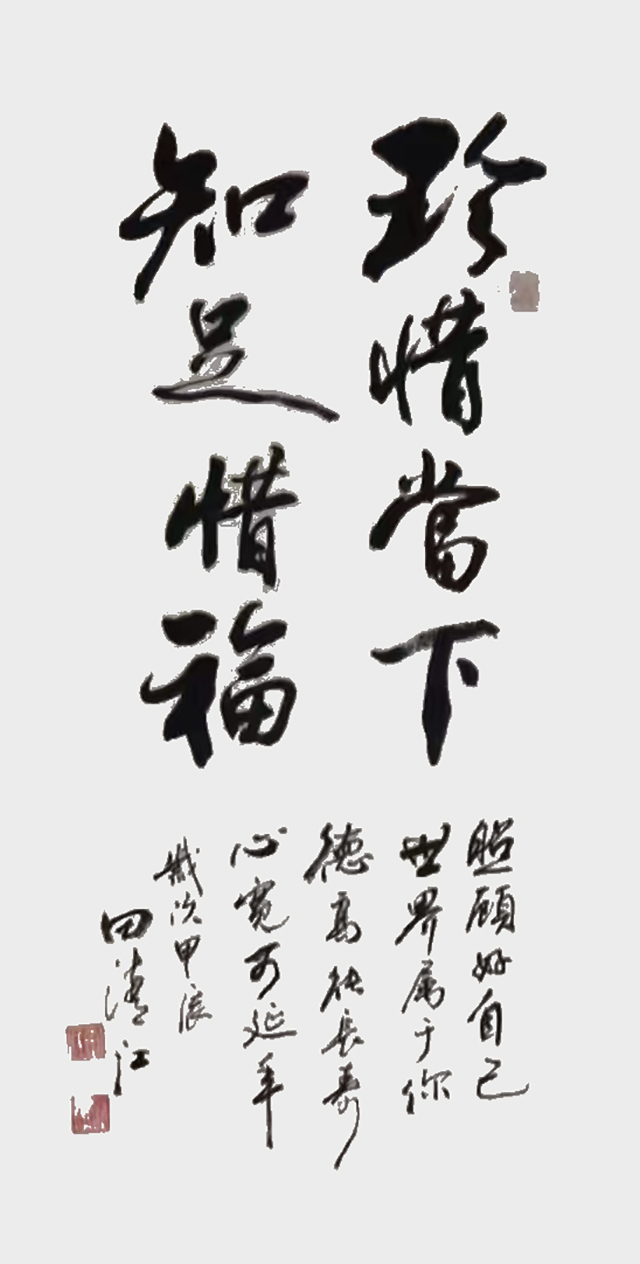 珍惜當下
知足惜福
照顾好自己
世界属于你
德高能長寿
心宽可延年
歲次甲辰
田清江